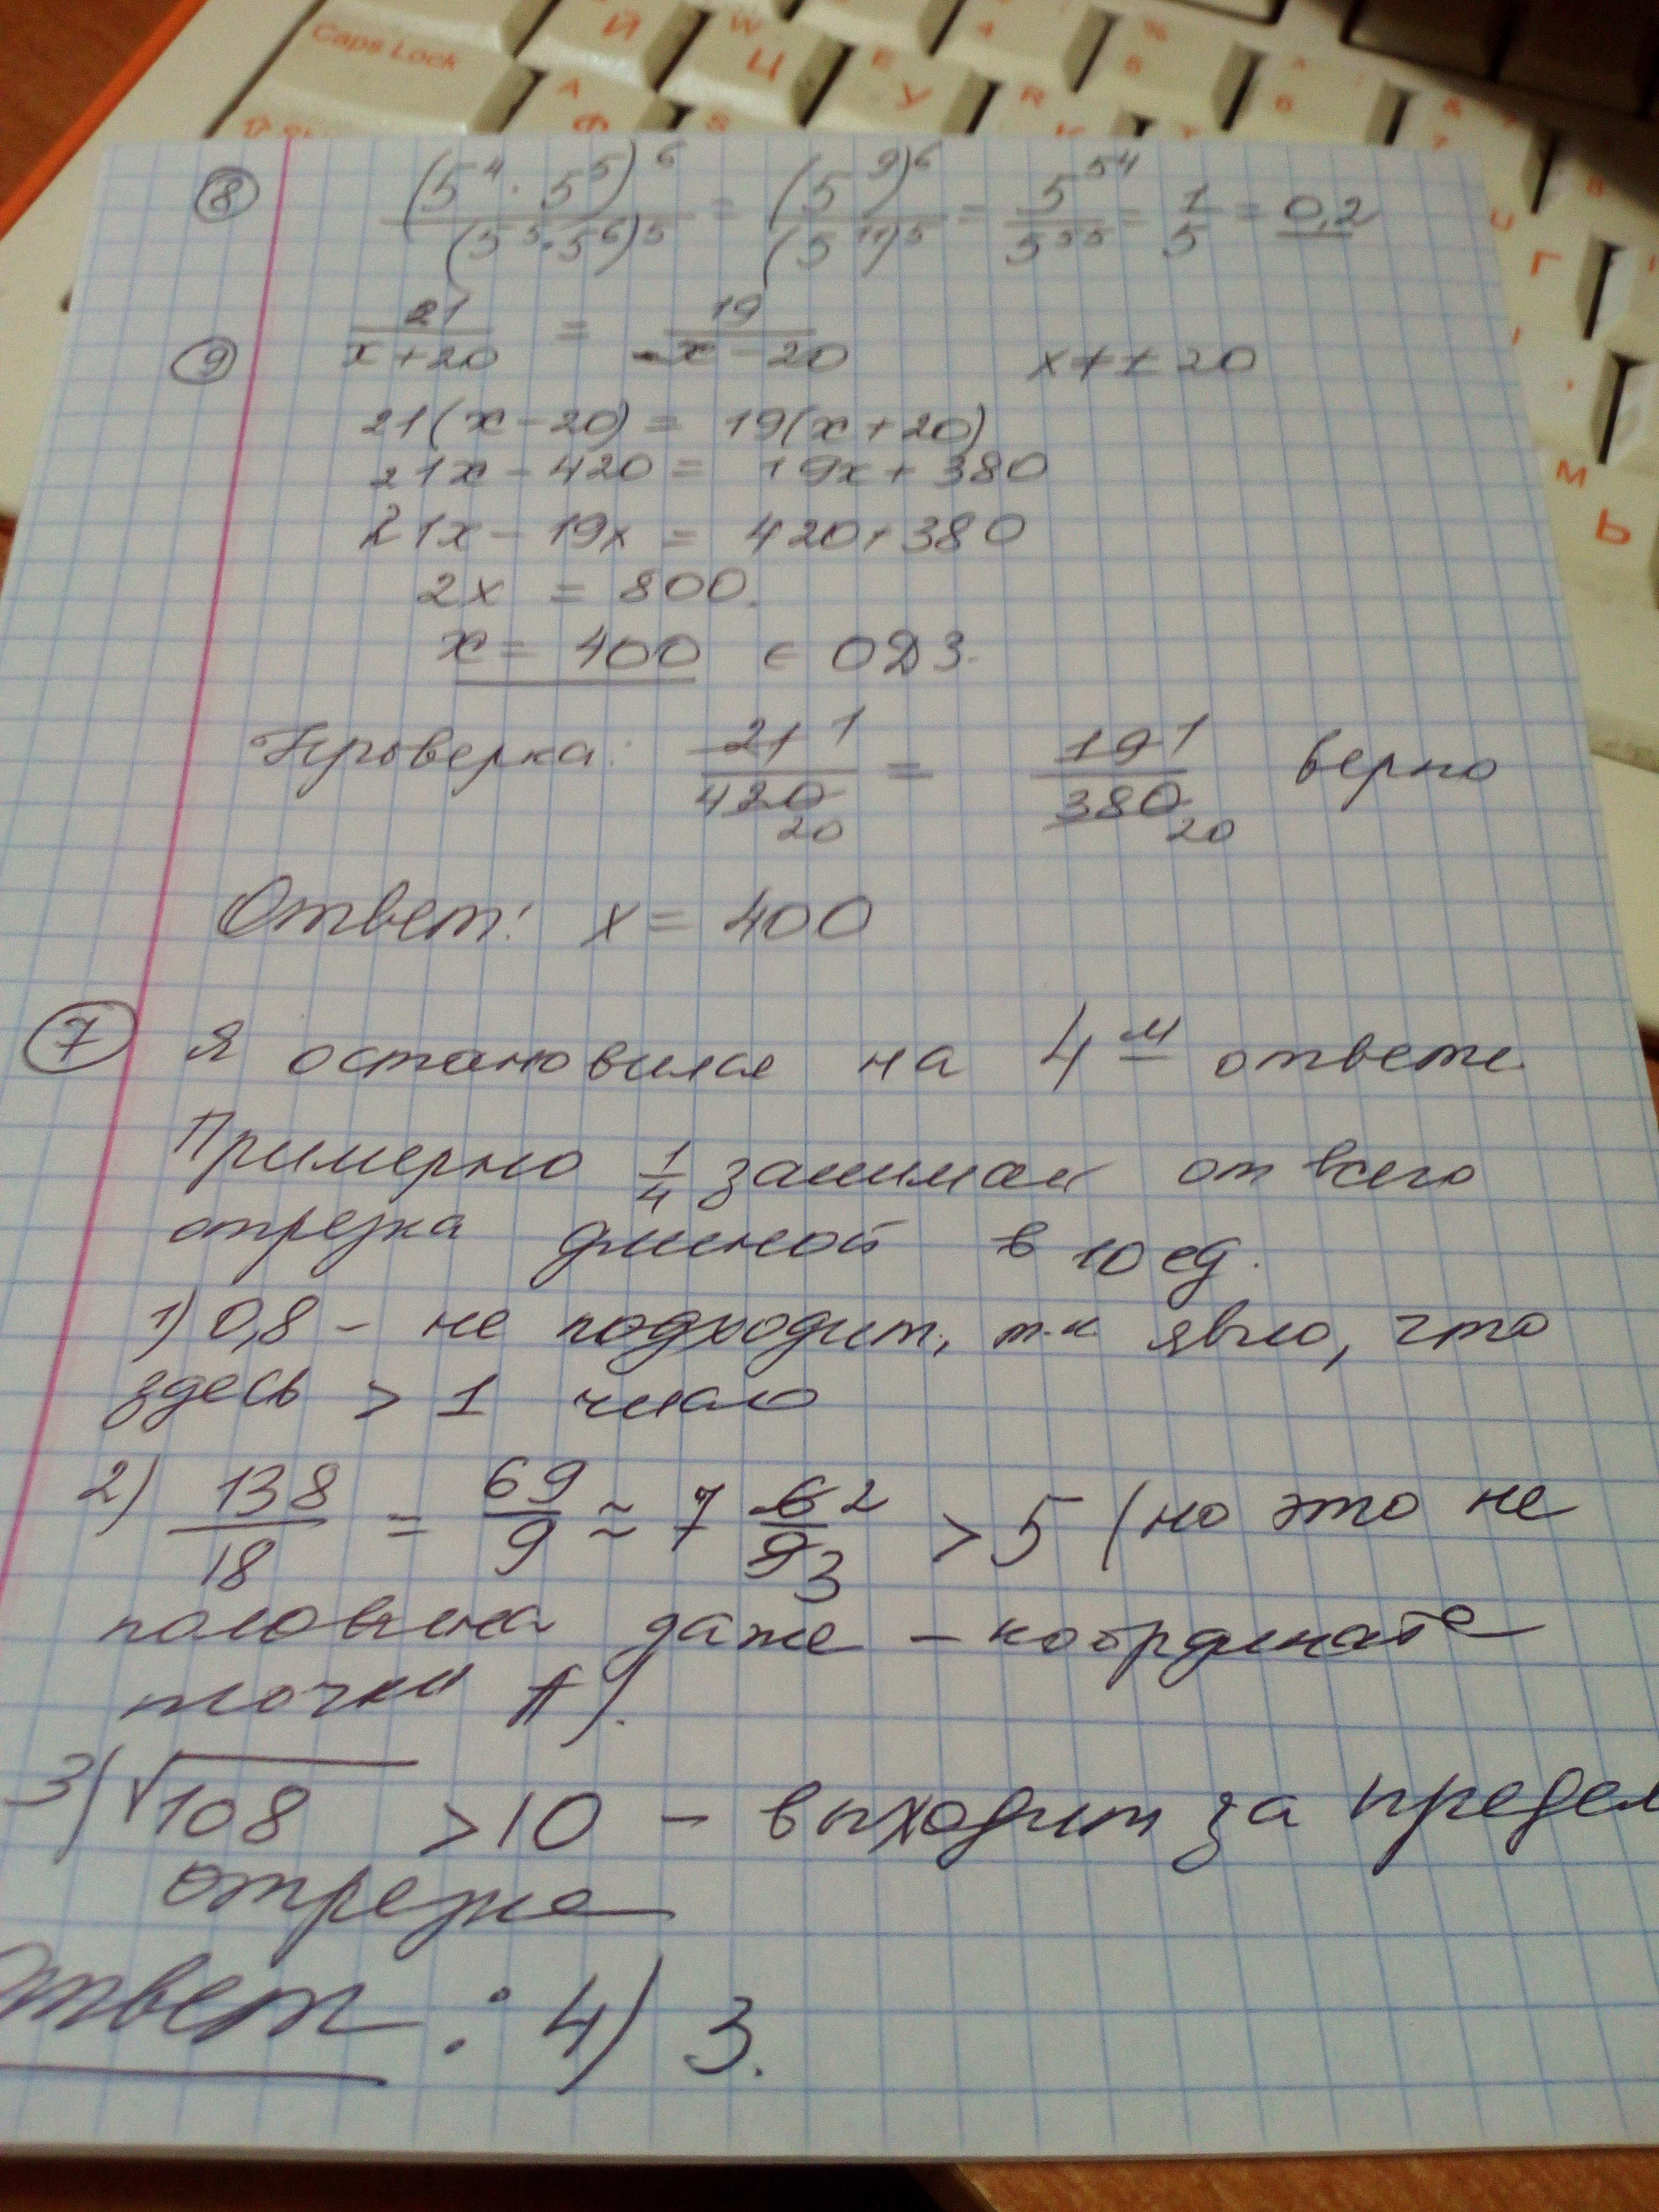 Caps Lock
Й W Ц E У R
A Ф
Г
М Ь
⑧ (5⁴·5⁵)⁶/(5⁵·5⁶)⁵ = (5⁹)⁶/(5¹¹)⁵ = 5⁵⁴/5⁵⁵ = 1/5 = 0,2
⑨ 21/(x+20) = 19/(x-20) x ≠ ±20
21(x-20) = 19(x+20)
21x - 420 = 19x + 380
21x - 19x = 420 + 380
2x = 800.
x = 400 ∈ ОДЗ.
Проверка: 21 1/420 20 = 19 1/380 20 верно
Ответ: x = 400
⑦ Я остановилась на 4м ответе.
Примерно 1/4 занимает от всего
отрезка длиной в 10 ед.
1) 0,8 - не подходит, т.к явно, что
здесь > 1 число
2) 138/18 = 69/9 ≈ 7 6 2/9 3 > 5 (но это не
половина даже - координате
точки А).
3) √108 > 10 - выходит за предел
отрезка
Ответ: 4) 3.